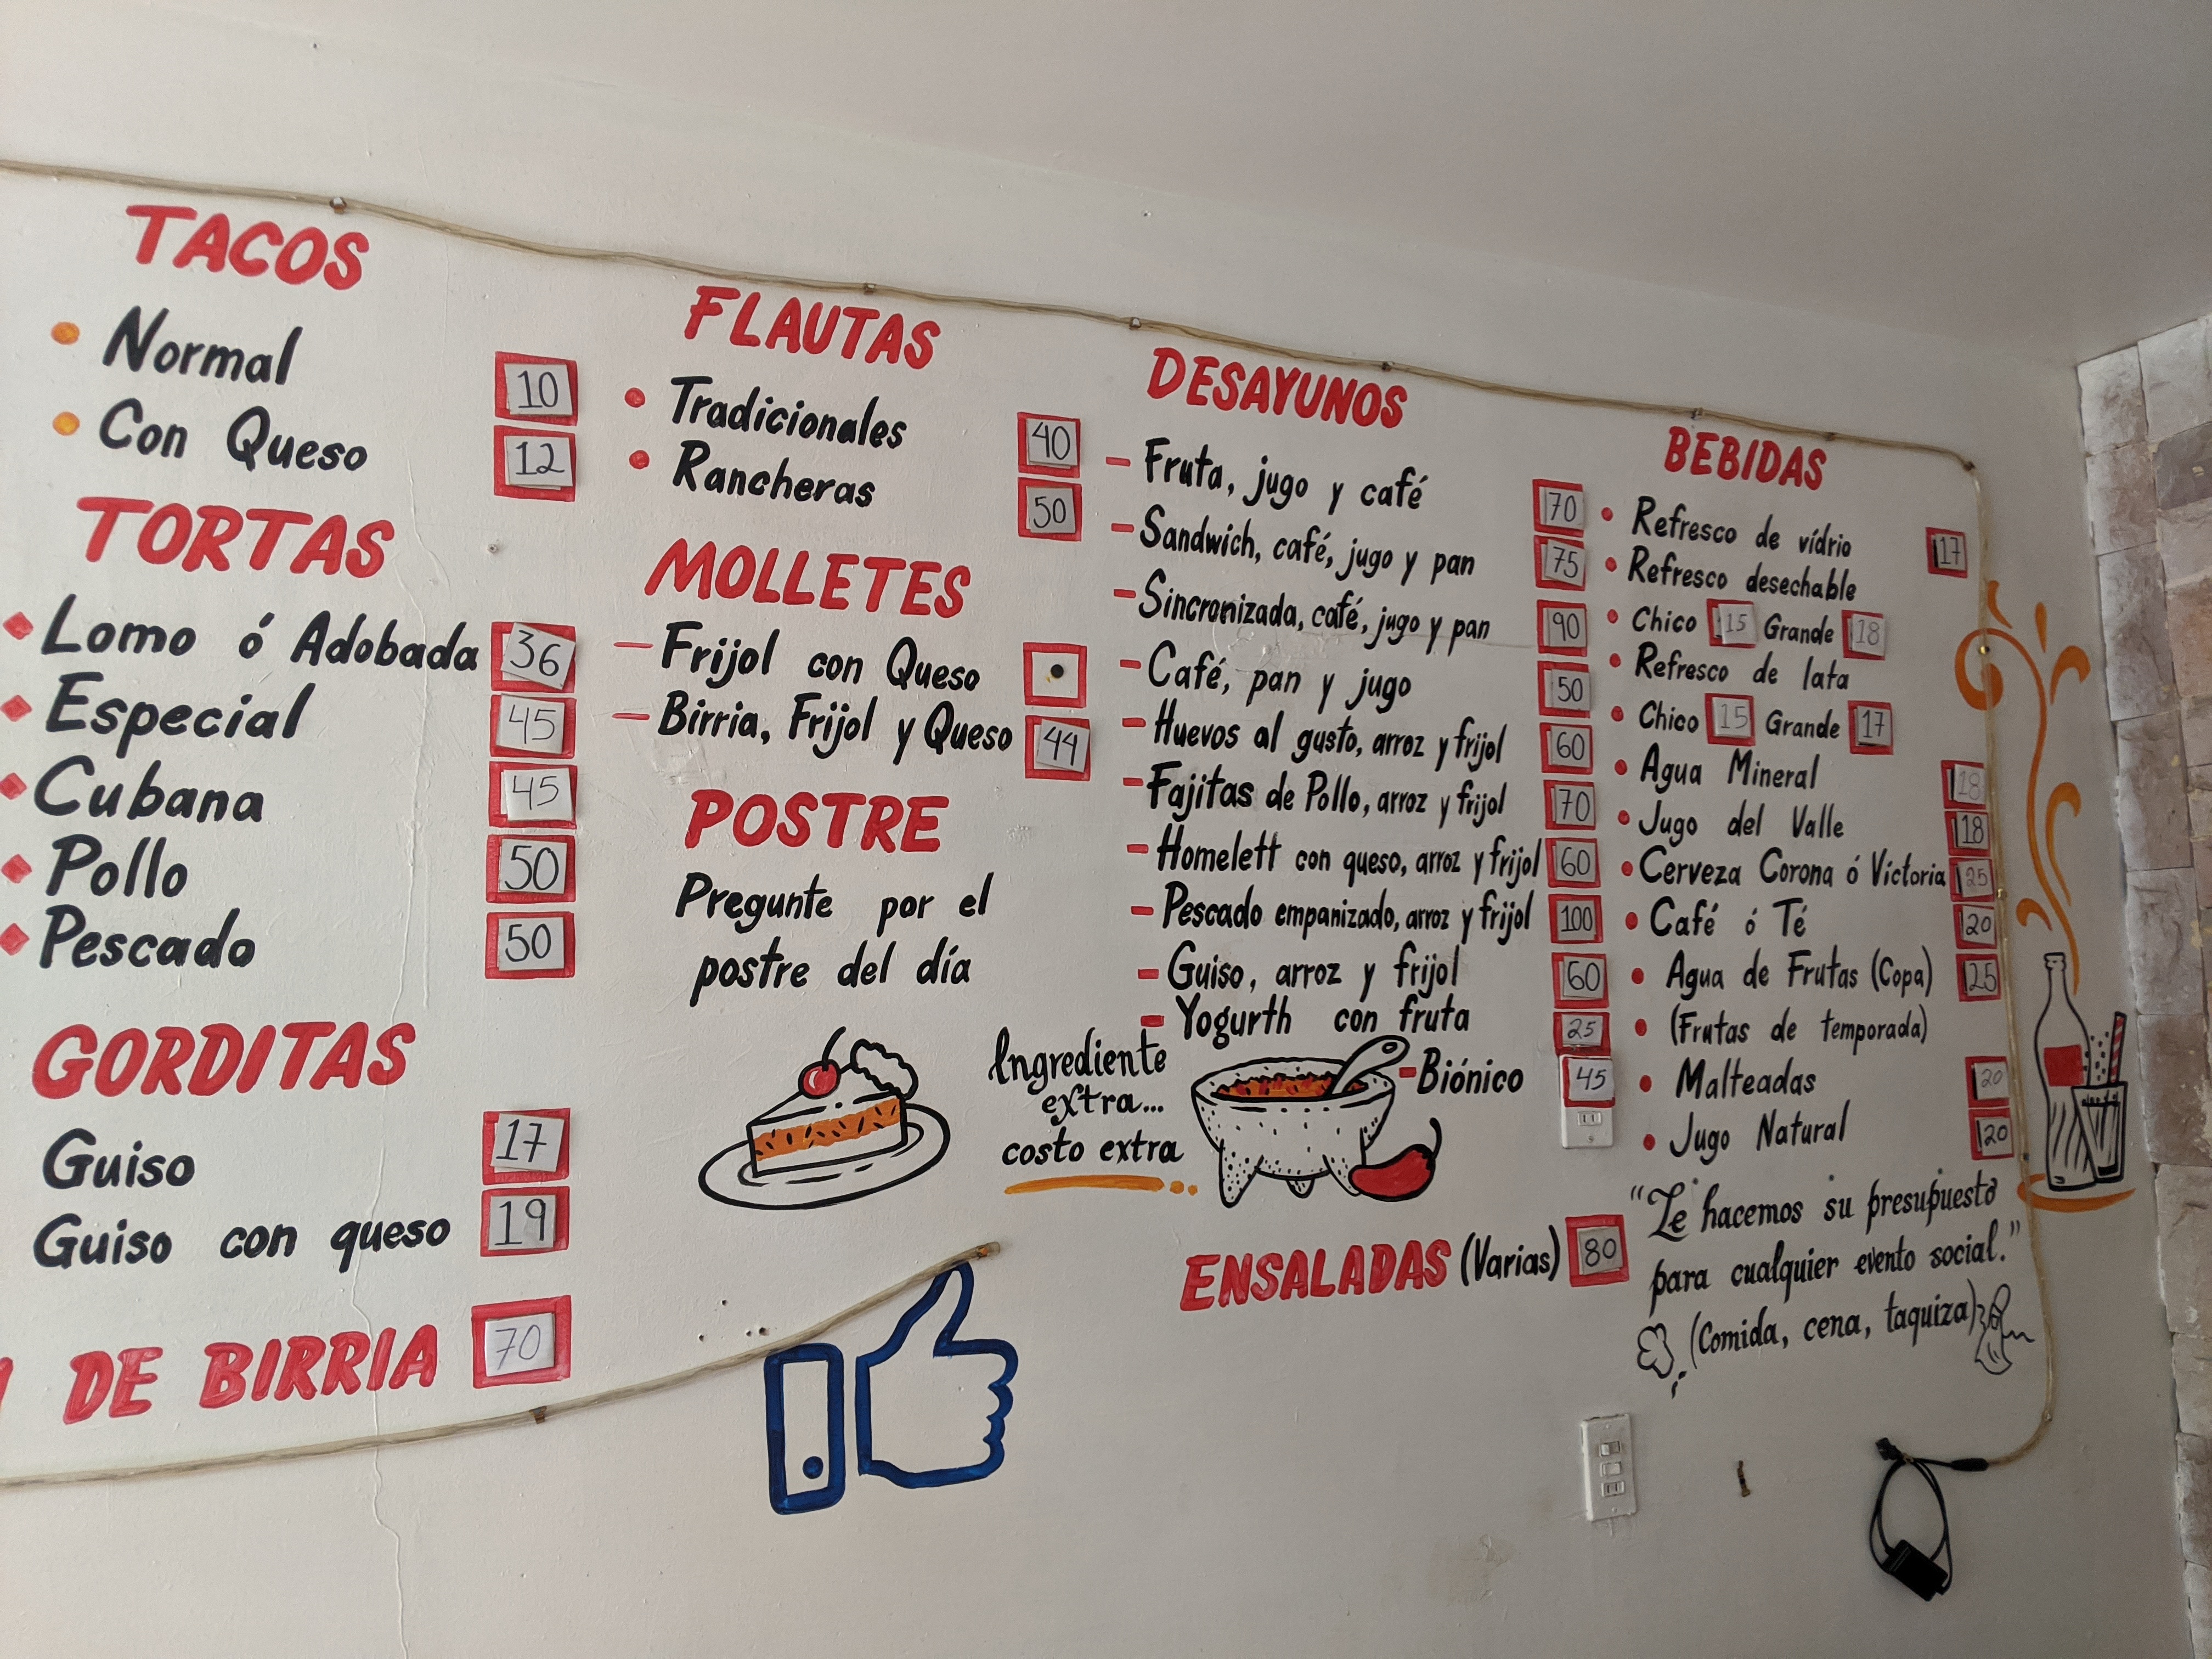 TACOS
Normal 10
Con Queso 12
TORTAS
Lomo ó Adobada 36
Especial 45
Cubana 45
Pollo 50
Pescado 50
GORDITAS
Guiso 17
Guiso con queso 19
DE BIRRIA 70
FLAUTAS
Tradicionales 40
Rancheras 50
MOLLETES
Frijol con Queso
Birria, Frijol y Queso 44
POSTRE
Pregunte por el
postre del día
Ingrediente
extra...
costo extra
DESAYUNOS
Fruta, jugo y café 70
Sandwich, café, jugo y pan 75
Sincronizada, café, jugo y pan 90
Café, pan y jugo 50
Huevos al gusto, arroz y frijol 60
Fajitas de Pollo, arroz y frijol 70
Homelett con queso, arroz y frijol 60
Pescado empanizado, arroz y frijol 100
Guiso, arroz y frijol 60
Yogurth con fruta 25
Biónico 45
ENSALADAS (Varias) 80
BEBIDAS
Refresco de vídrio 17
Refresco desechable
Chico 15 Grande 18
Refresco de lata
Chico 15 Grande 17
Agua Mineral 18
Jugo del Valle 18
Cerveza Corona ó Victoria 25
Café ó Té 20
Agua de Frutas (Copa) 25
(Frutas de temporada)
Malteadas 20
Jugo Natural 20
"Le hacemos su presupuesto
para cualquier evento social."
(Comida, cena, taquiza)